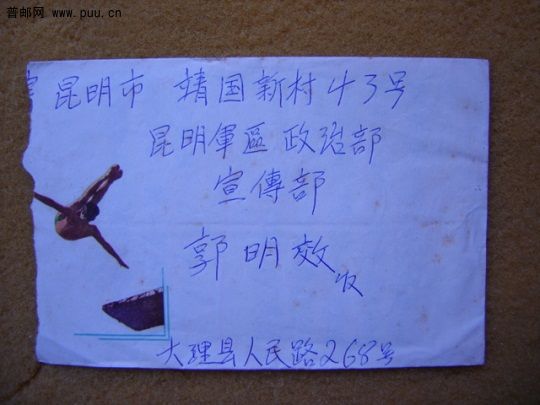 普邮网 www.puu.cn
昆明市 靖国新村43号
昆明軍區政治部
宣傳部
郭明效 收
大理县人民路268号